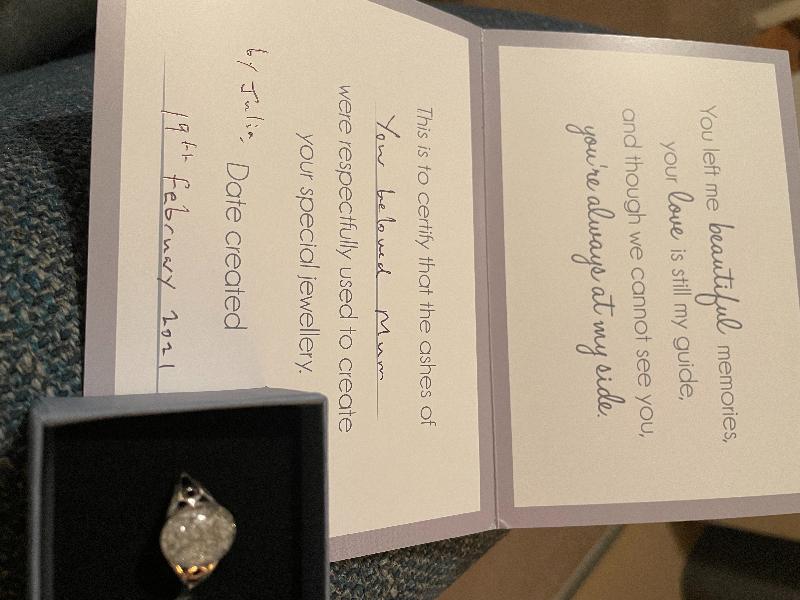 You left me beautiful memories,
your love is still my guide,
and though we cannot see you,
you're always at my side.
This is to certify that the ashes of
Your beloved Mum
were respectfully used to create
your special jewellery.
by Julia. Date created
19th february 2021